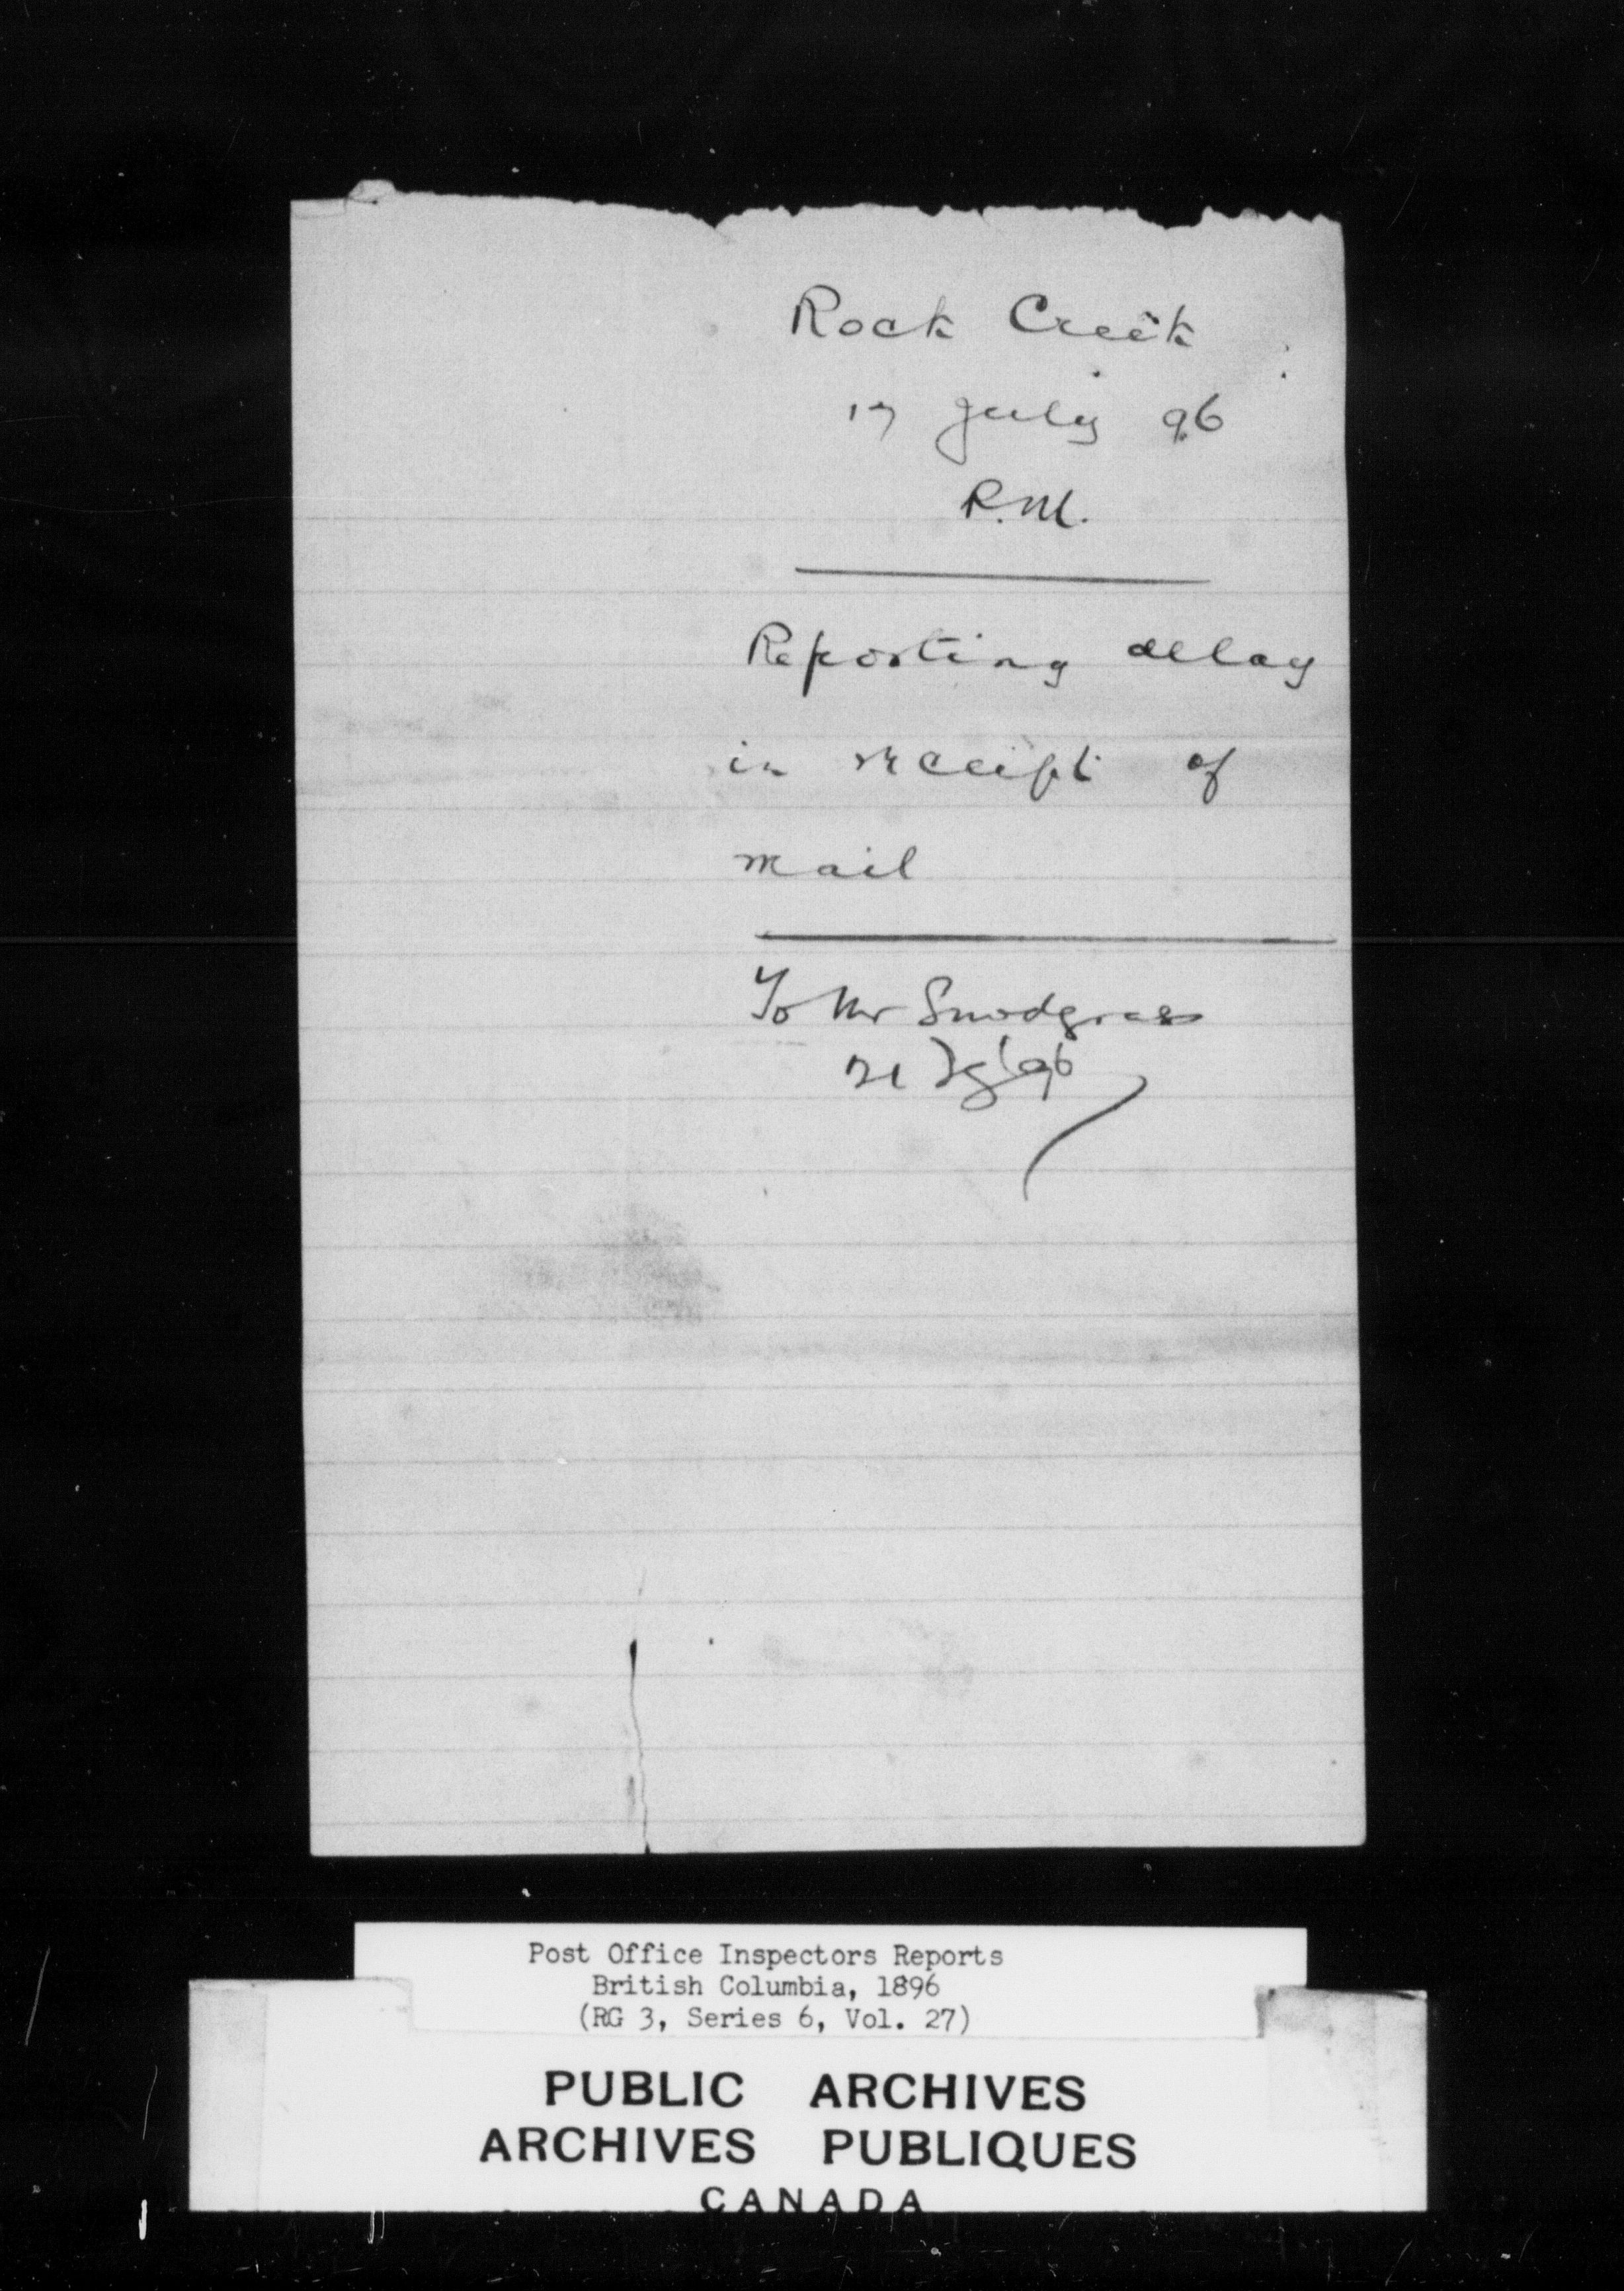 Rock Creek
17 July 96
P.M.
Reporting delay
in receipt of
mail
To Mr Snodgrass
21 96
Post Office Inspectors Reports
British Columbia, 1896
(RG 3, Series 6, Vol. 27)
PUBLIC ARCHIVES
ARCHIVES PUBLIQUES
CANADA